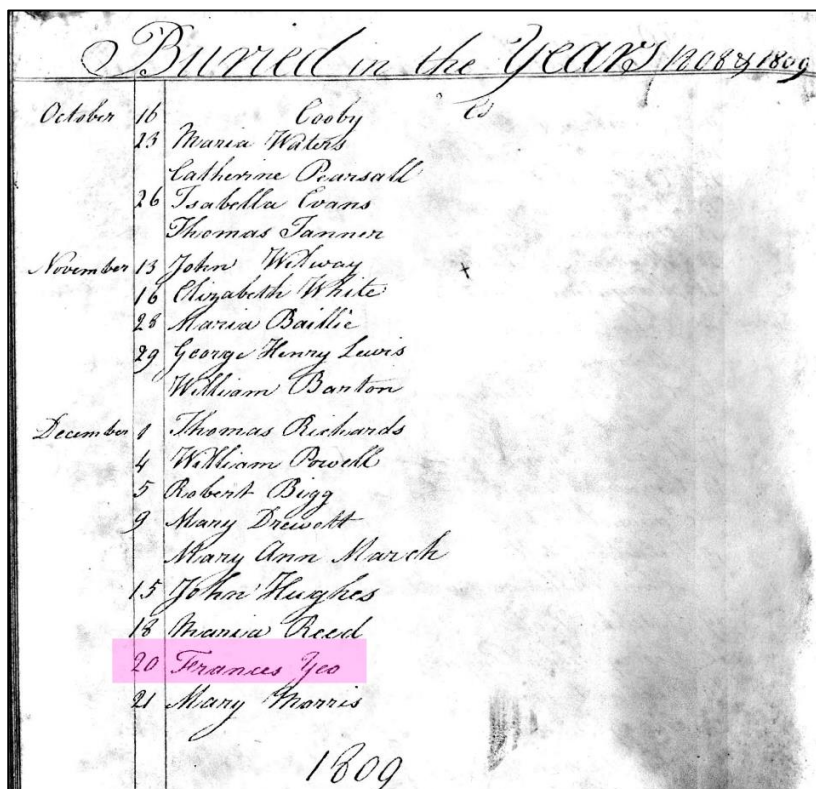 Buried in the Years 1808 & 1809
October 16 Cooby
23 Maria Waters
Catherine Pearsall
26 Isabella Evans
Thomas Tanner
November 13 John Wilway x
16 Elizabeth White
28 Maria Baillie
29 George Henry Lewis
William Barton
December 1 Thomas Richards
4 William Powell
5 Robert Bigg
9 Mary Drewett
Mary Ann March
15 John Hughes
18 Maria Reed
20 Frances Yeo
21 Mary Morris
1809